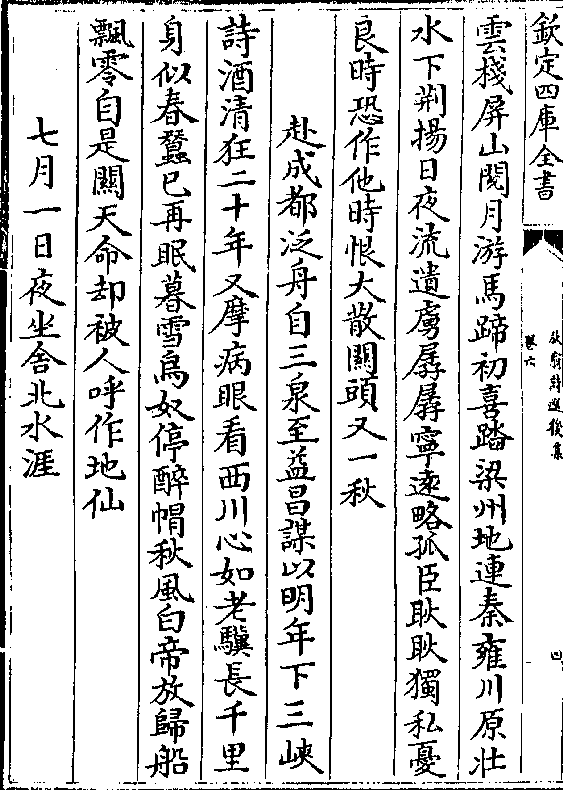 欽定四庫全書
放翁詩選後集
卷六
四
雲棧屏山閱月游馬蹄初喜踏梁州地連秦雍川原壯
水下荆揚日夜流遺虜孱孱寧遠略孤臣耿耿獨私憂
良時恐作他時恨大散關頭又一秋
赴成都泛舟自三泉至益昌謀以明年下三峽
詩酒清狂二十年又摩病眼看西川心如老驥長千里
身似春蠶已再眠暮雪烏奴停醉帽秋風白帝放歸船
飄零自是關天命却被人呼作地仙
七月一日夜坐舍北水涯